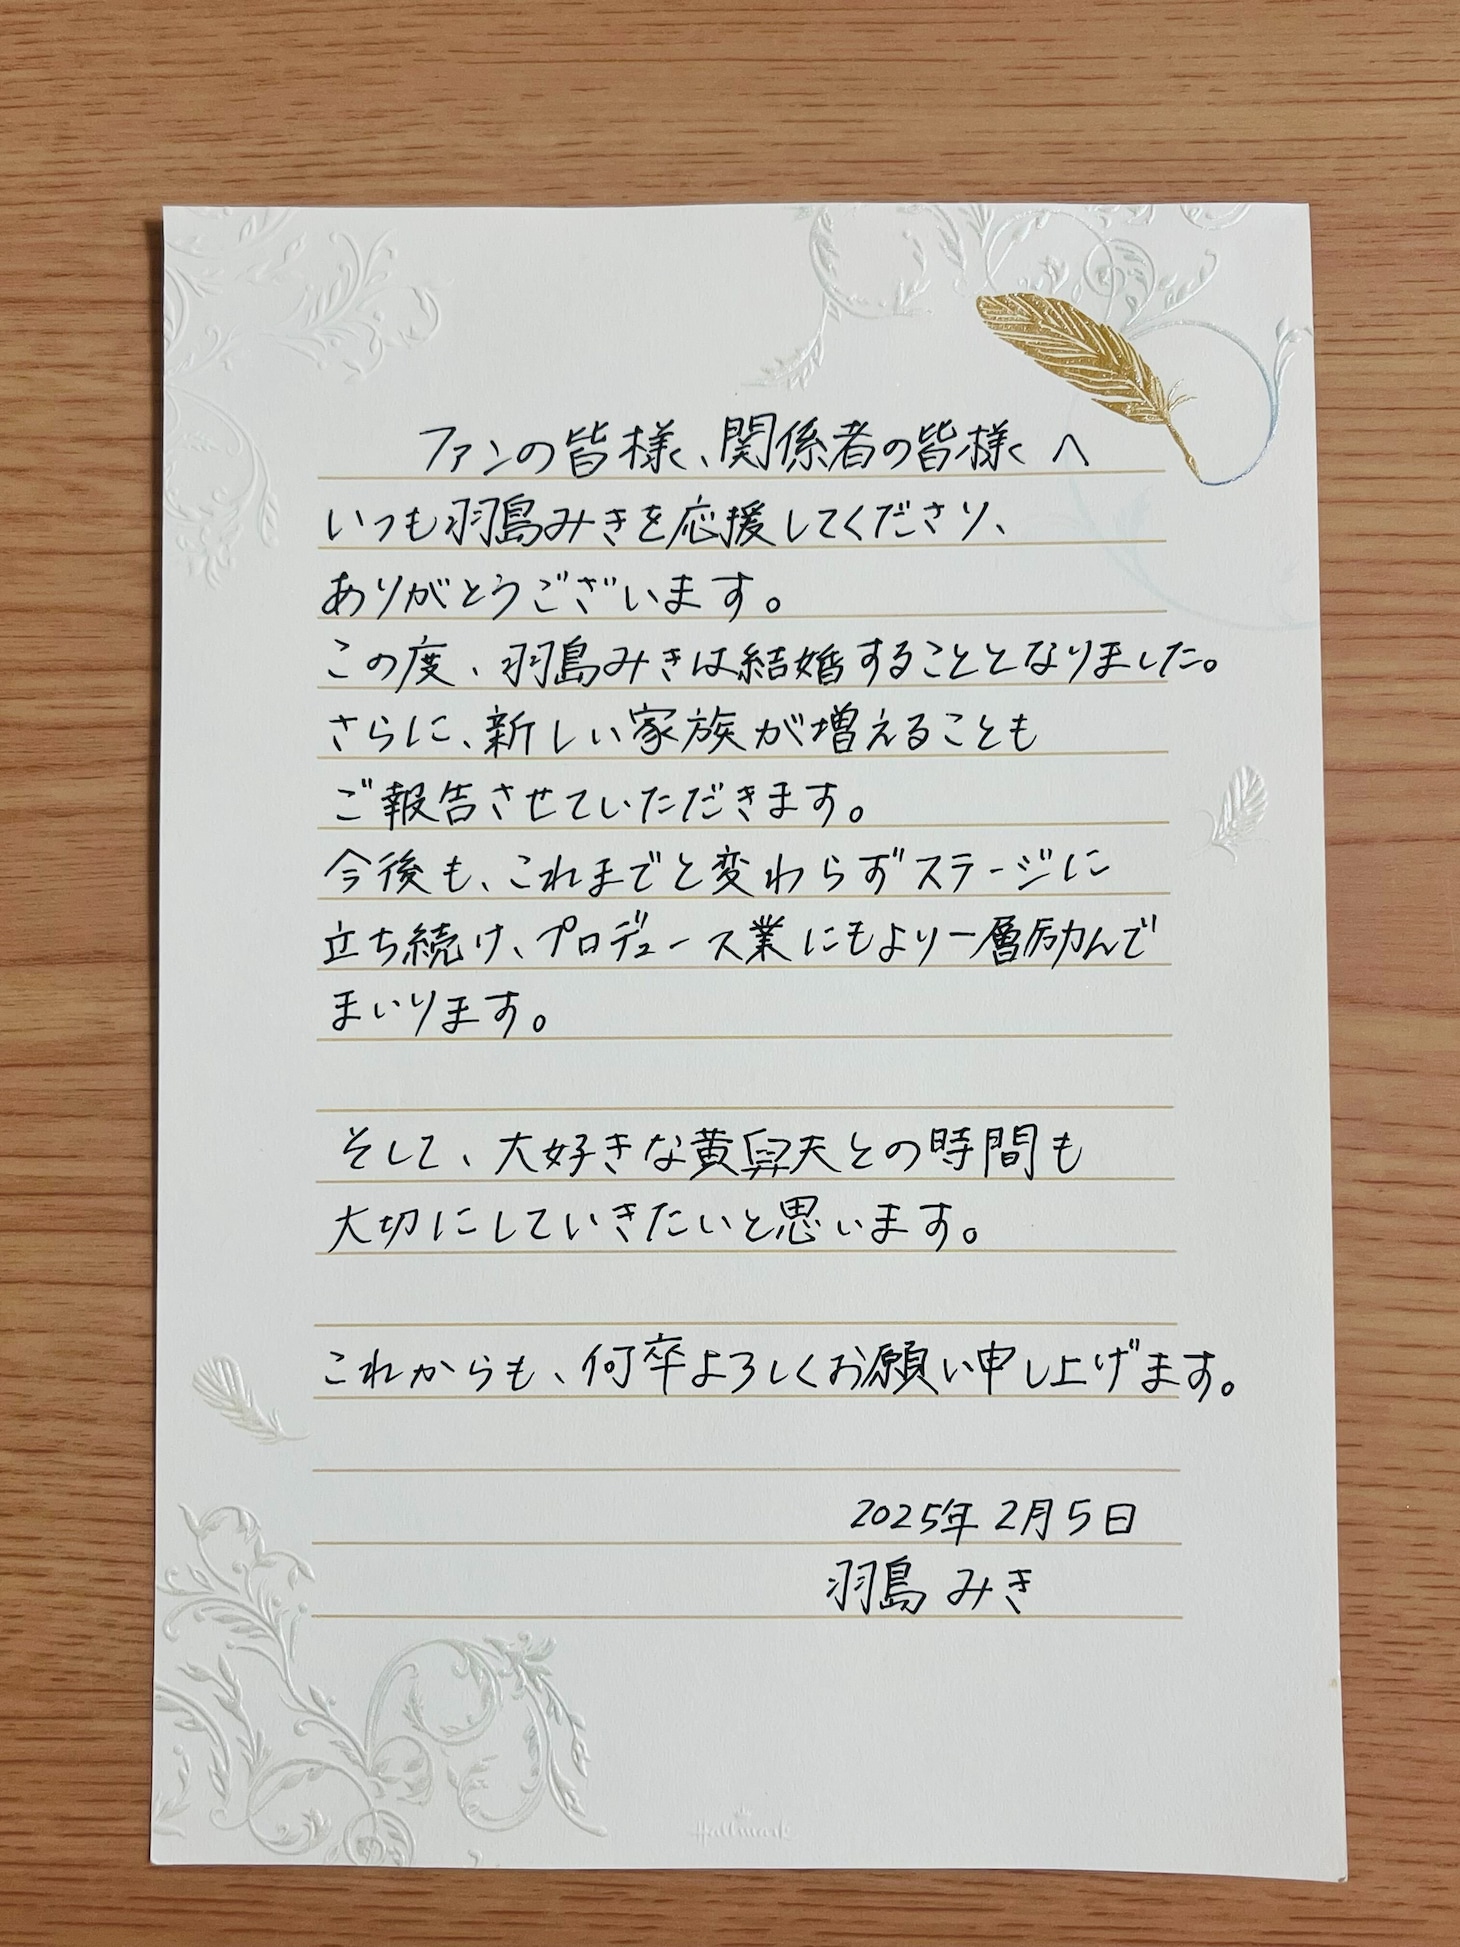 ファンの皆様、関係者の皆様へ
いつも羽島みきを応援してくださり、
ありがとうございます。
この度、羽島みきは結婚することとなりました。
さらに、新しい家族が増えることも
ご報告させていただきます。
今後も、これまでと変わらずステージに
立ち続け、プロデュース業にもより一層励んで
まいります。
そして、大好きな黄昇天との時間も
大切にしていきたいと思います。
これからも、何卒よろしくお願い申し上げます。
2025年2月5日
羽島 みき
Hallmark